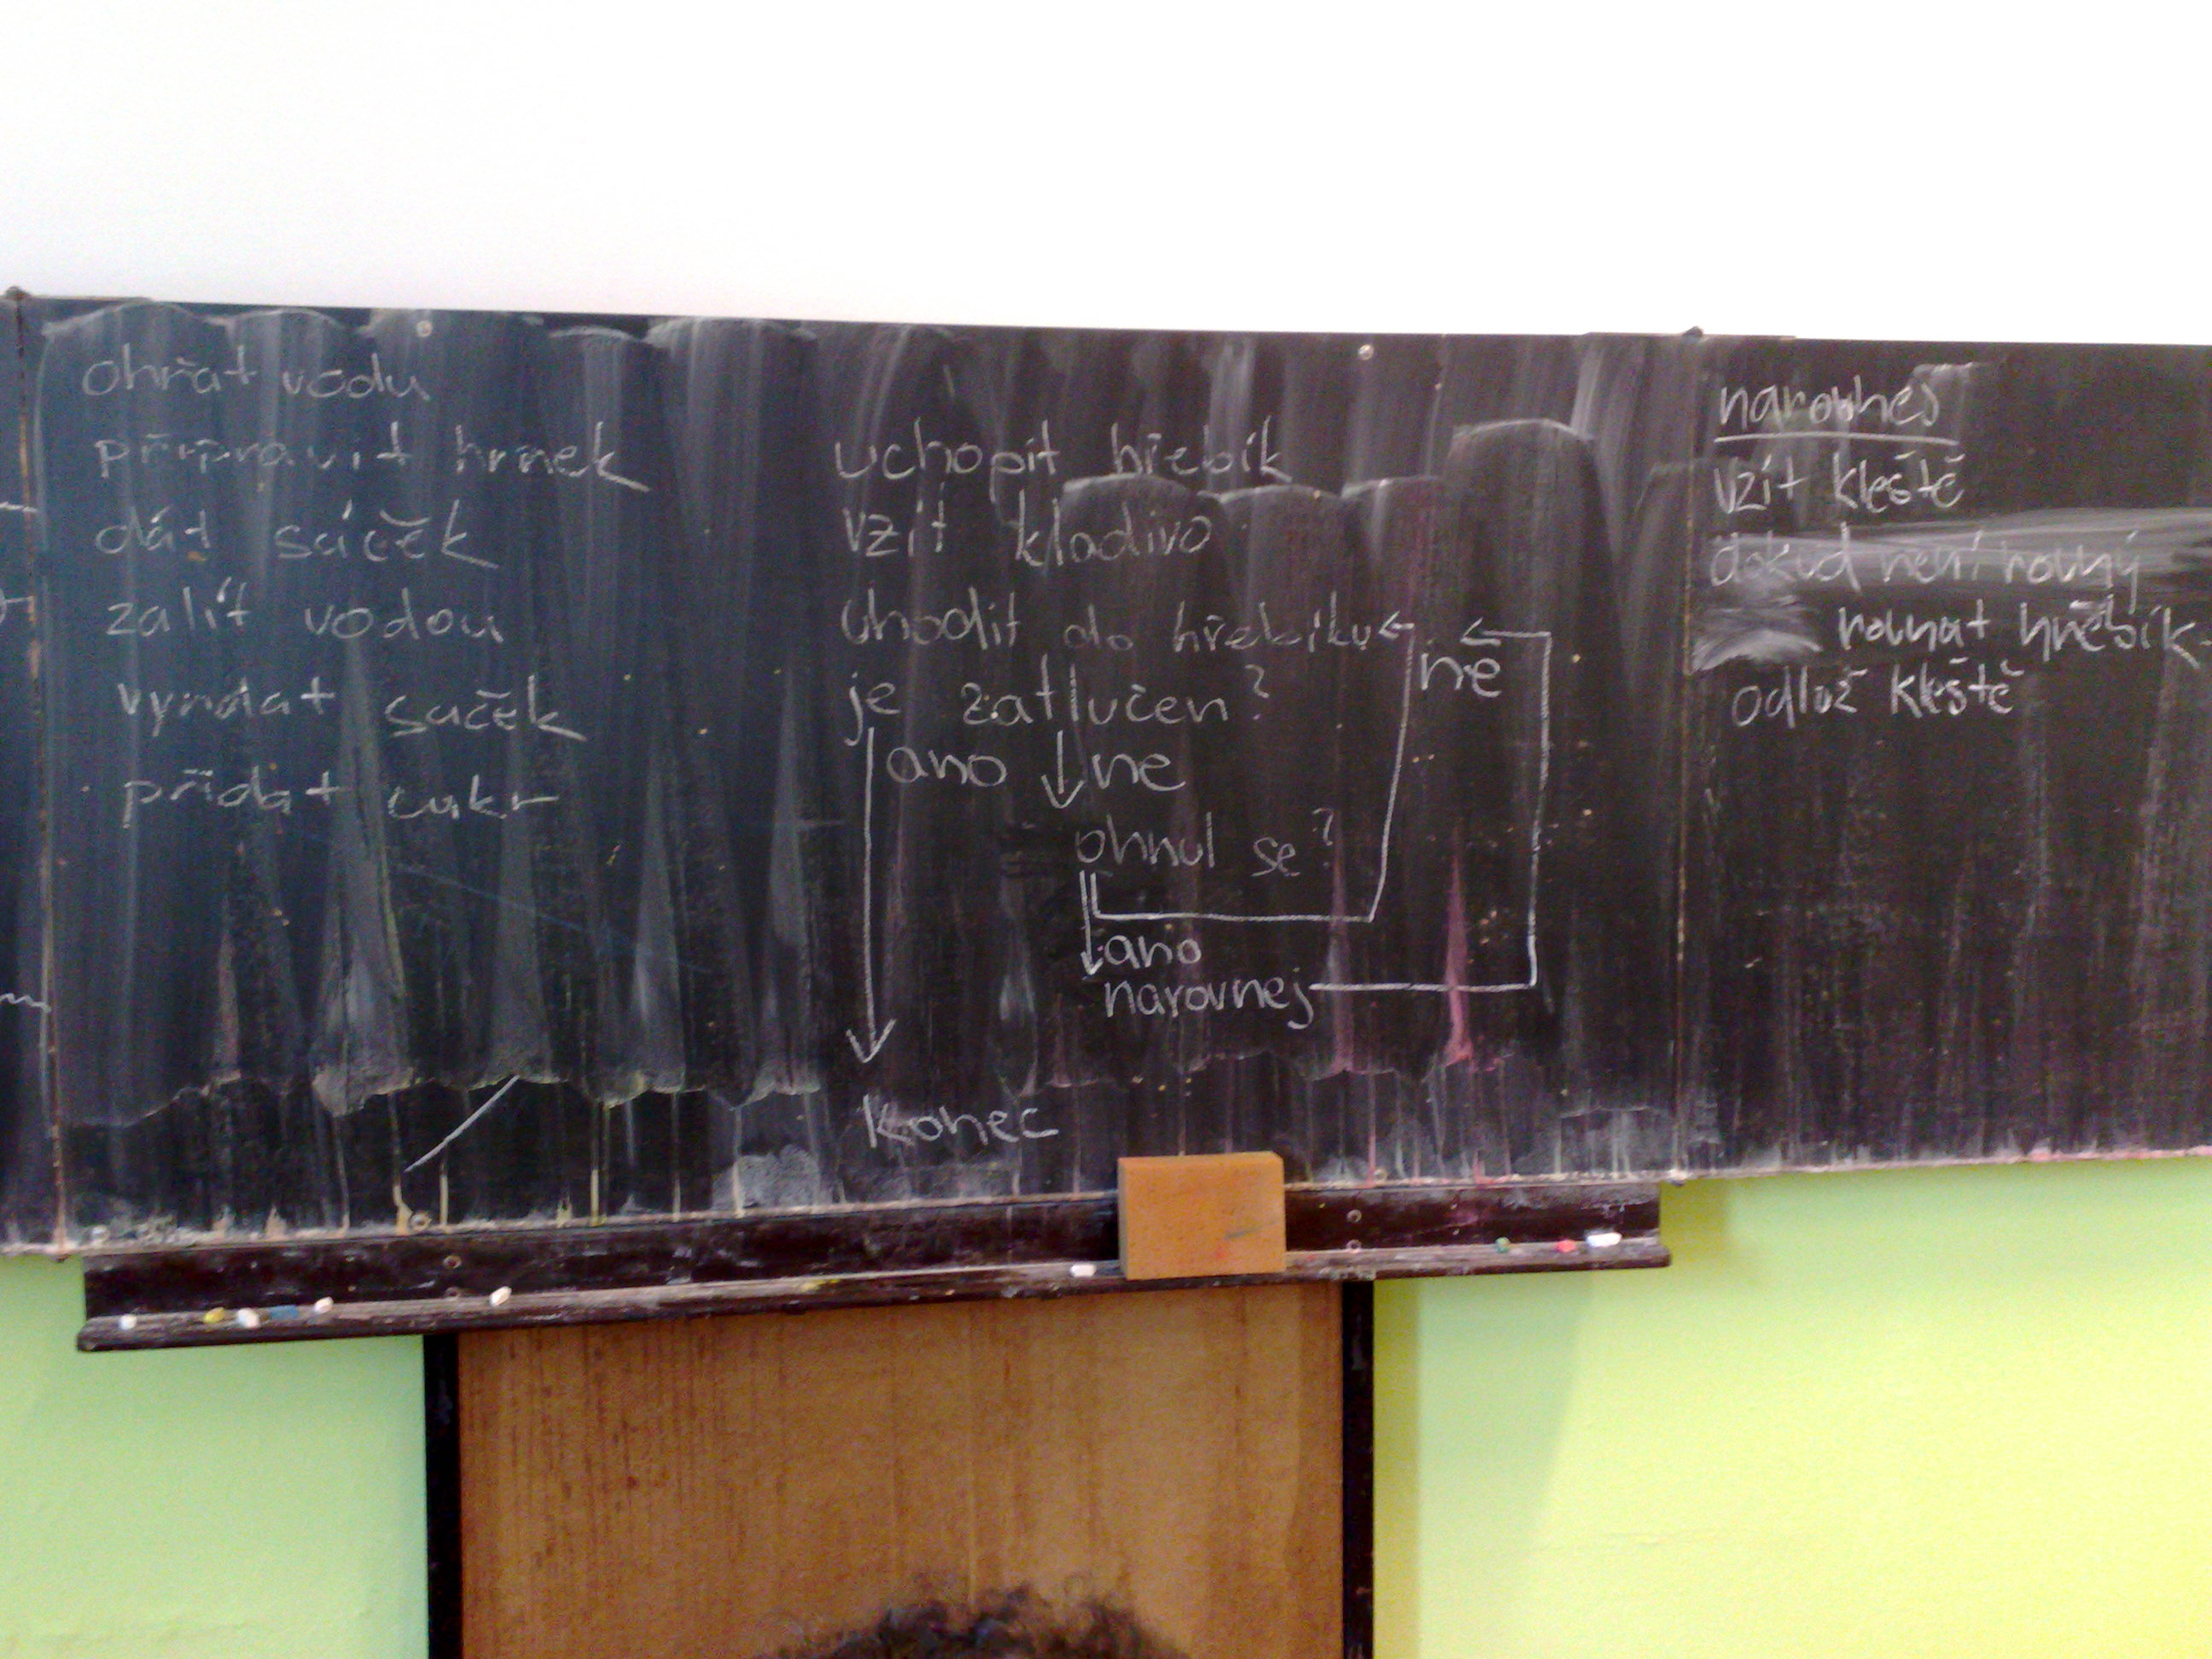 ohřat vodu
připravit hrnek
dát sáčěk
zalít vodou
vyndat sačěk
přidat cukr
uchopit hřebík
vzít kladivo
uhodit do hřebíku
ne
je zatlučen?
ano ne
ohnul se?
ano
narovnej
Konec
narovnej
vzít kleště
dokud není rovný
rovnat hřebík
odlož kleště